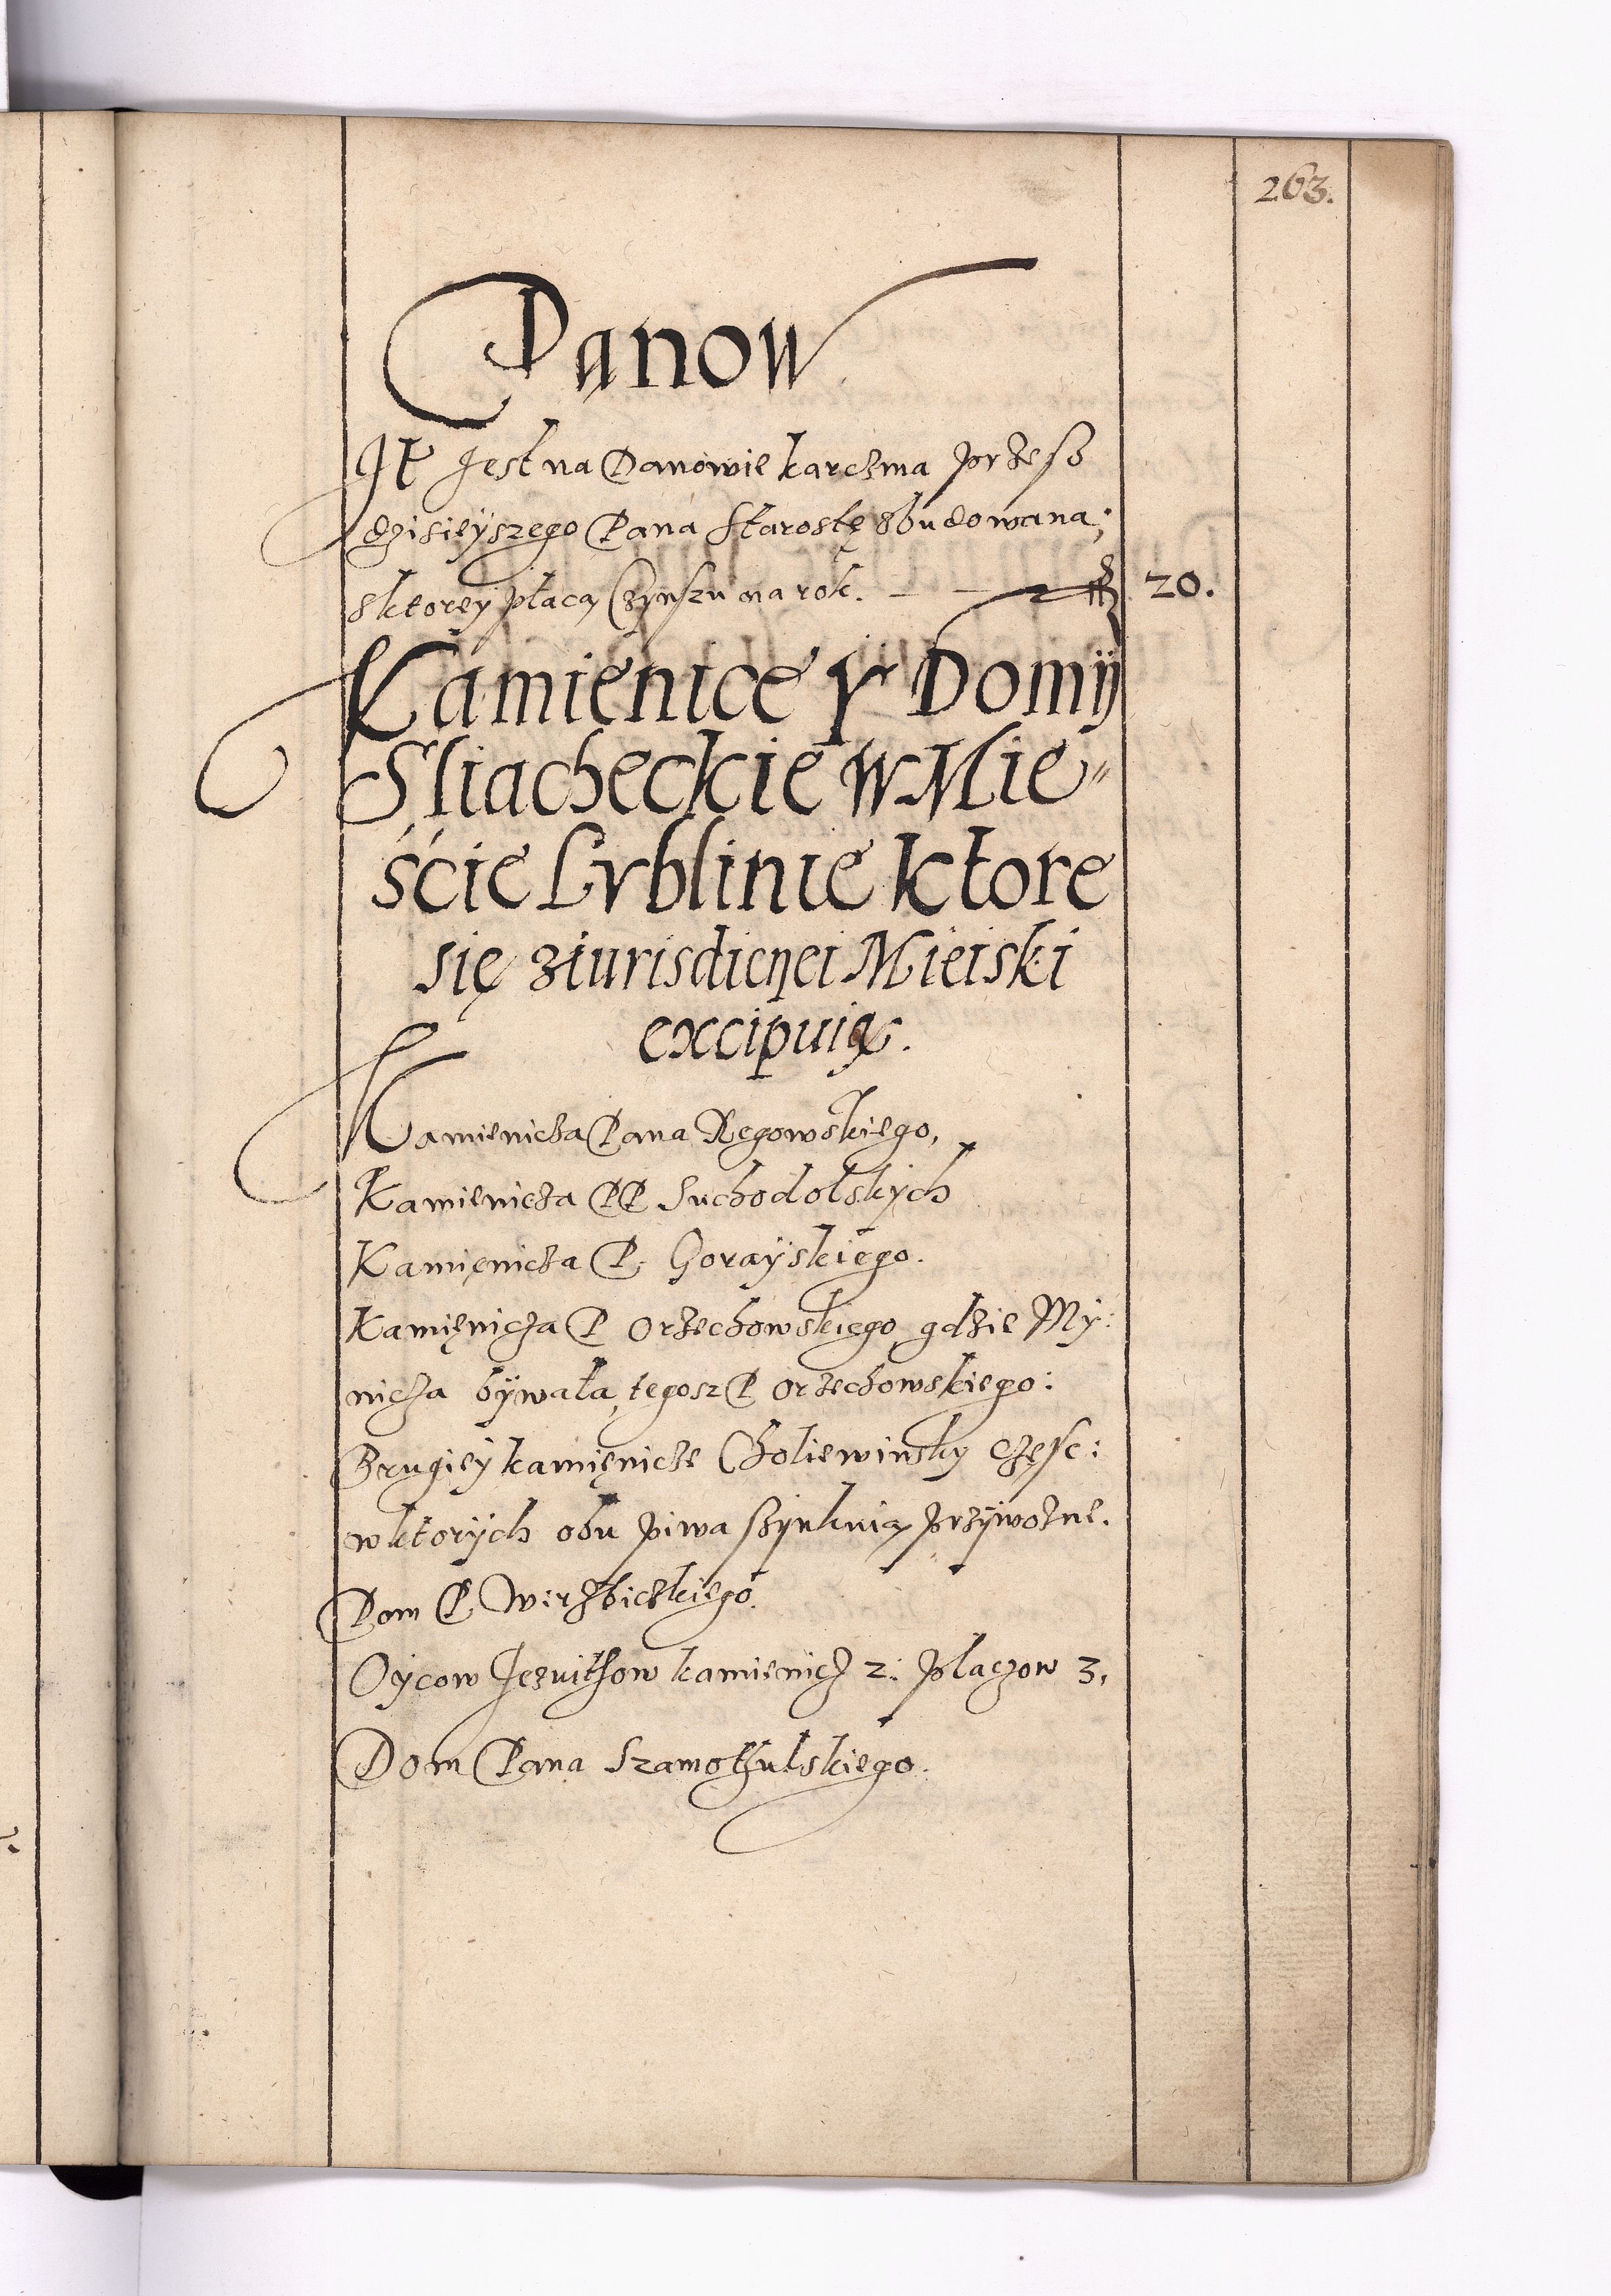 263.
Panow
It Jest na Panowie karczma przesz
dzisieÿszego Pana Starostę zbudowana;
z ktoreÿ płacą Czynszu na rok. — — fl 20.
Kamienice Y Domÿ
Sliacheckie w Mie„
ście Lvblinie ktore
się z iurisdicnei Mieiski
excipuią.
Kamienicza Pana Regowskiego,
Kamienicza PP Suchodolskych
Kamięnicza P. Goraÿskiego.
Kamięnicza P Orzechowskiego gdzie My:
nicza bÿwała, tegosz P Orzechowskiego:
Drugieÿ kamięnicze Choliewinsky częsc:
w ktorÿch obu piwa szynkuią przÿwozne.
Dom P Wirzbiczkiego.
Oÿcow Jezuithow kamienicz 2: placzow 3,
Dom Pana Szamothulskiego.